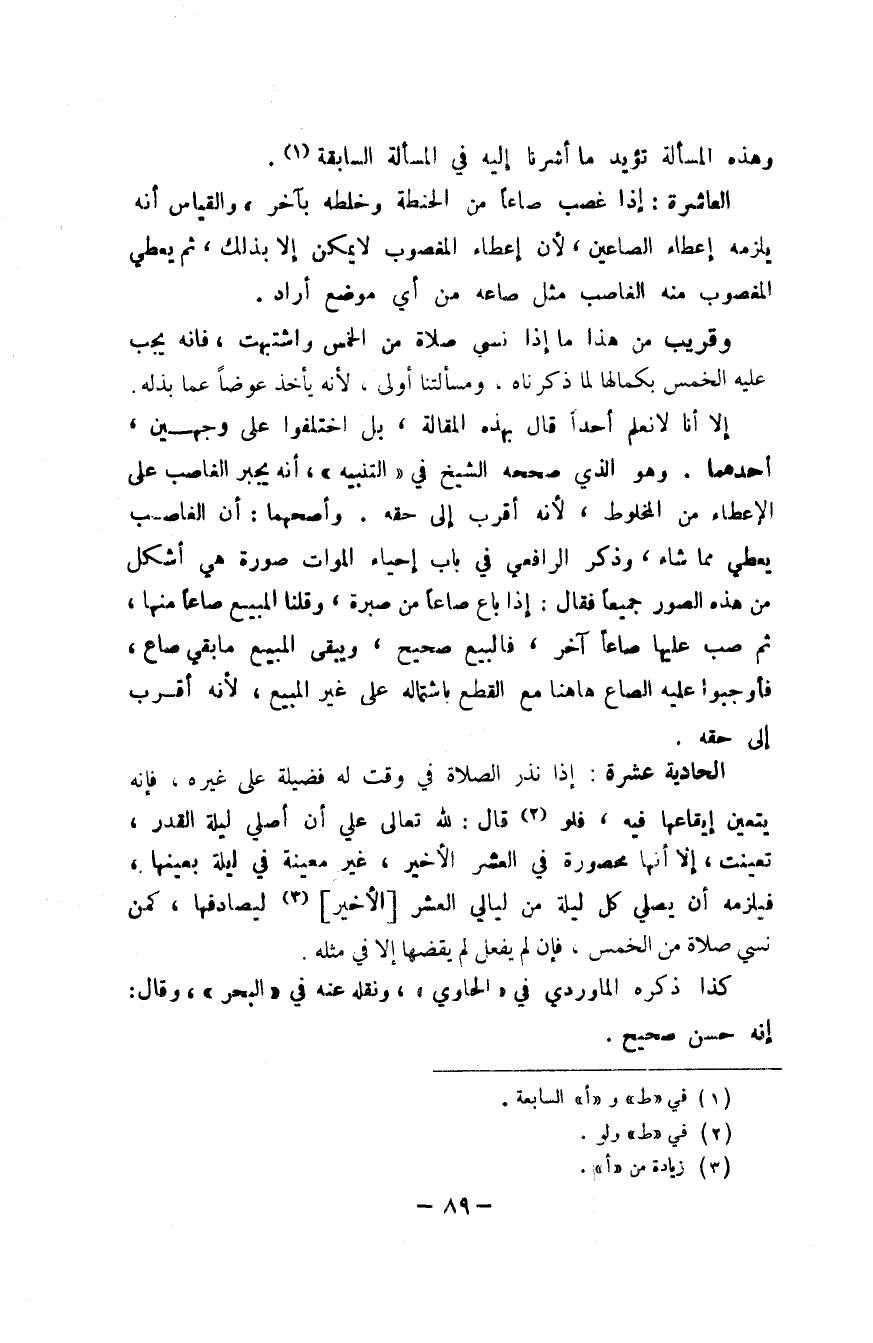 وهذه المسألة تؤيد ما أشرنا إليه في المسألة السابقة (١) .
العاشرة : إذا غصب صاعاً من الحنطة وخلطه بآخر ، والقياس أنه
يلزمه إعطاء الصاعين ، لأن إعطاء المغصوب لايمكن إلا بذلك ، ثم يعطي
المغصوب منه الغاصب مثل صاعه من أي موضع أراد .
وقريب من هذا ما إذا نسي صلاة من الخمس واشتبهت ، فانه يجب
عليه الخمس بكمالها لما ذكرناه ، ومسألتنا أولى ، لأنه يأخذ عوضاً عما بذله .
إلا أنا لانعلم أحداً قال بهذه المقالة ، بل اختلفوا على وجهـــين ،
أحدهما . وهو الذي صححه الشيخ في « التنبيه » ، أنه يجبر الغاصب على
الإعطاء من المخلوط ، لأنه أقرب إلى حقه . وأصحهما : أن الغاصـب
يعطي مما شاء ، وذكر الرافعي في باب إحياء الموات صورة هي أشكل
من هذه الصور جميعاً فقال : إذا باع صاعاً من صبرة ، وقلنا المبيع صاعاً منها ،
ثم صب عليها صاعاً آخر ، فالبيع صحيح ، ويبقى المبيع مابقي صاع ،
فأوجبوا عليه الصاع هاهنا مع القطع باشتماله على غير المبيع ، لأنه أقـرب
إلى حقه .
الحادية عشرة : إذا نذر الصلاة في وقت له فضيلة على غيره ، فإنه
يتعين إيقاعها فيه ، فلو (٢) قال : لله تعالى علي أن أصلي ليلة القدر ،
تعينت ، إلا أنها محصورة في العشر الأخير ، غير معينة في ليلة بعينها ،
فيلزمه أن يصلي كل ليلة من ليالي العشر [الأخير] (٣) ليصادفها ، كمن
نسي صلاة من الخمس ، فإن لم يفعل لم يقضها إلا في مثله .
كذا ذكره الماوردي في « الحاوي » ، ونقله عنه في « البحر » ، وقال :
إنه حسن صحيح .
(١) في «ط» و «أ» السابعة .
(٢) في «ط» ولو .
(٣) زيادة من «أ» .
– ٨٩ –